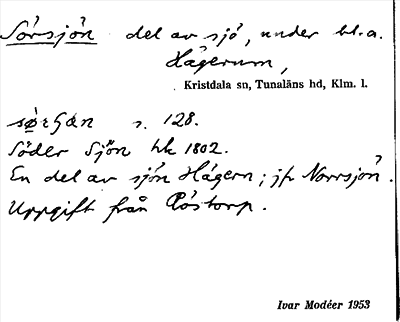 Sörsjön del av sjö, under bl.a.
Hägerum,
Kristdala sn, Tunaläns hd, Klm. l.
s. 128.
Söder Sjön hk 1802.
En del av sjön Hägern; jfr Norrsjön.
Uppgift från Röstorp.
Ivar Modéer 1953